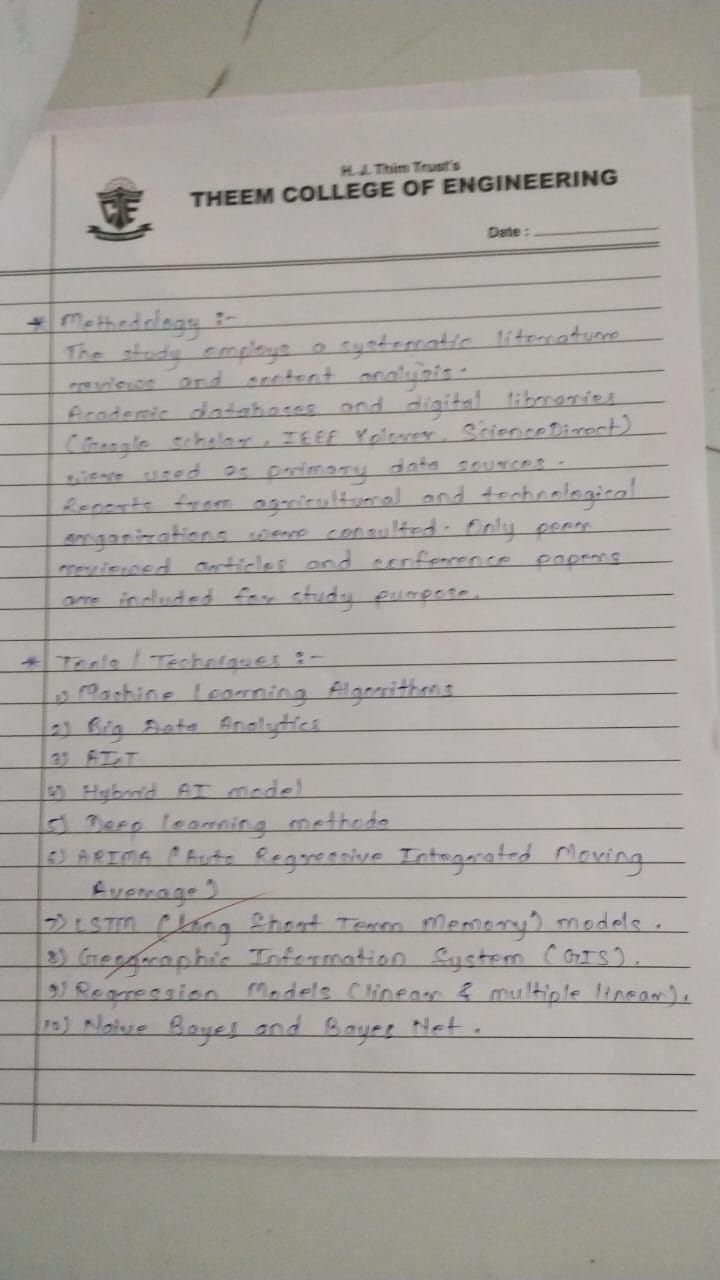 H. J. Thim Trust's
THEEM COLLEGE OF ENGINEERING
Date :
* Methodology :-
The study employs a systematic literature
reviews and content analysis.
Academic databases and digital libraries
(Google scholar, IEEE Xplorer, ScienceDirect)
were used as primary data sources.
Reports from agricultural and technological
organizations were consulted. Only peer
reviewed articles and conference papers
are included for study purpose.
* Tools / Techniques :-
1) Machine Learning Algorithms
2) Big Data Analytics
3) AIoT
4) Hybrid AI model
5) Deep learning methods
6) ARIMA (Auto Regressive Integrated Moving
Average)
7) LSTM (Long Short Term Memory) models.
8) Geographic Information System (GIS).
9) Regression Models (linear & multiple linear).
10) Naive Bayes and Bayes Net.